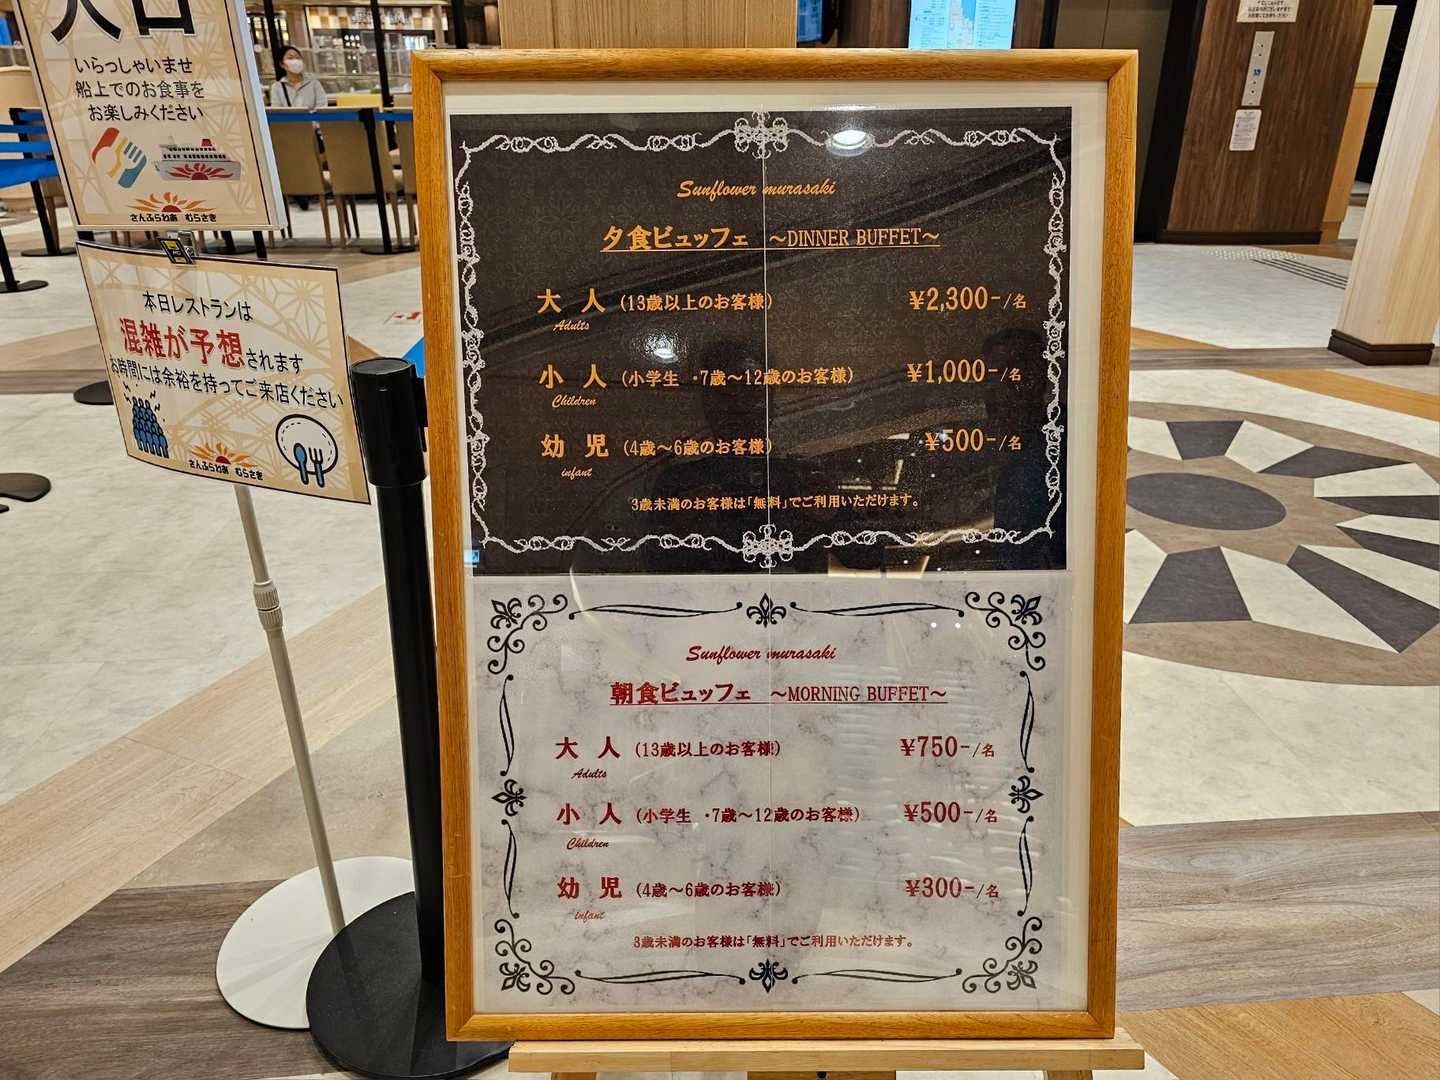 入口
いらっしゃいませ
船上でのお食事を
お楽しみください
さんふらわあ むらさき
本日レストランは
混雑が予想されます
お時間には余裕を持ってご来店ください
さんふらわあ むらさき
Sunflower murasaki
夕食ビュッフェ ～DINNER BUFFET～
大人 (13歳以上のお客様) ¥2,300-/名
Adults
小人 (小学生・7歳～12歳のお客様) ¥1,000-/名
Children
幼児 (4歳～6歳のお客様) ¥500-/名
infant
3歳未満のお客様は「無料」でご利用いただけます。
Sunflower murasaki
朝食ビュッフェ ～MORNING BUFFET～
大人 (13歳以上のお客様) ¥750-/名
Adults
小人 (小学生・7歳～12歳のお客様) ¥500-/名
Children
幼児 (4歳～6歳のお客様) ¥300-/名
infant
3歳未満のお客様は「無料」でご利用いただけます。